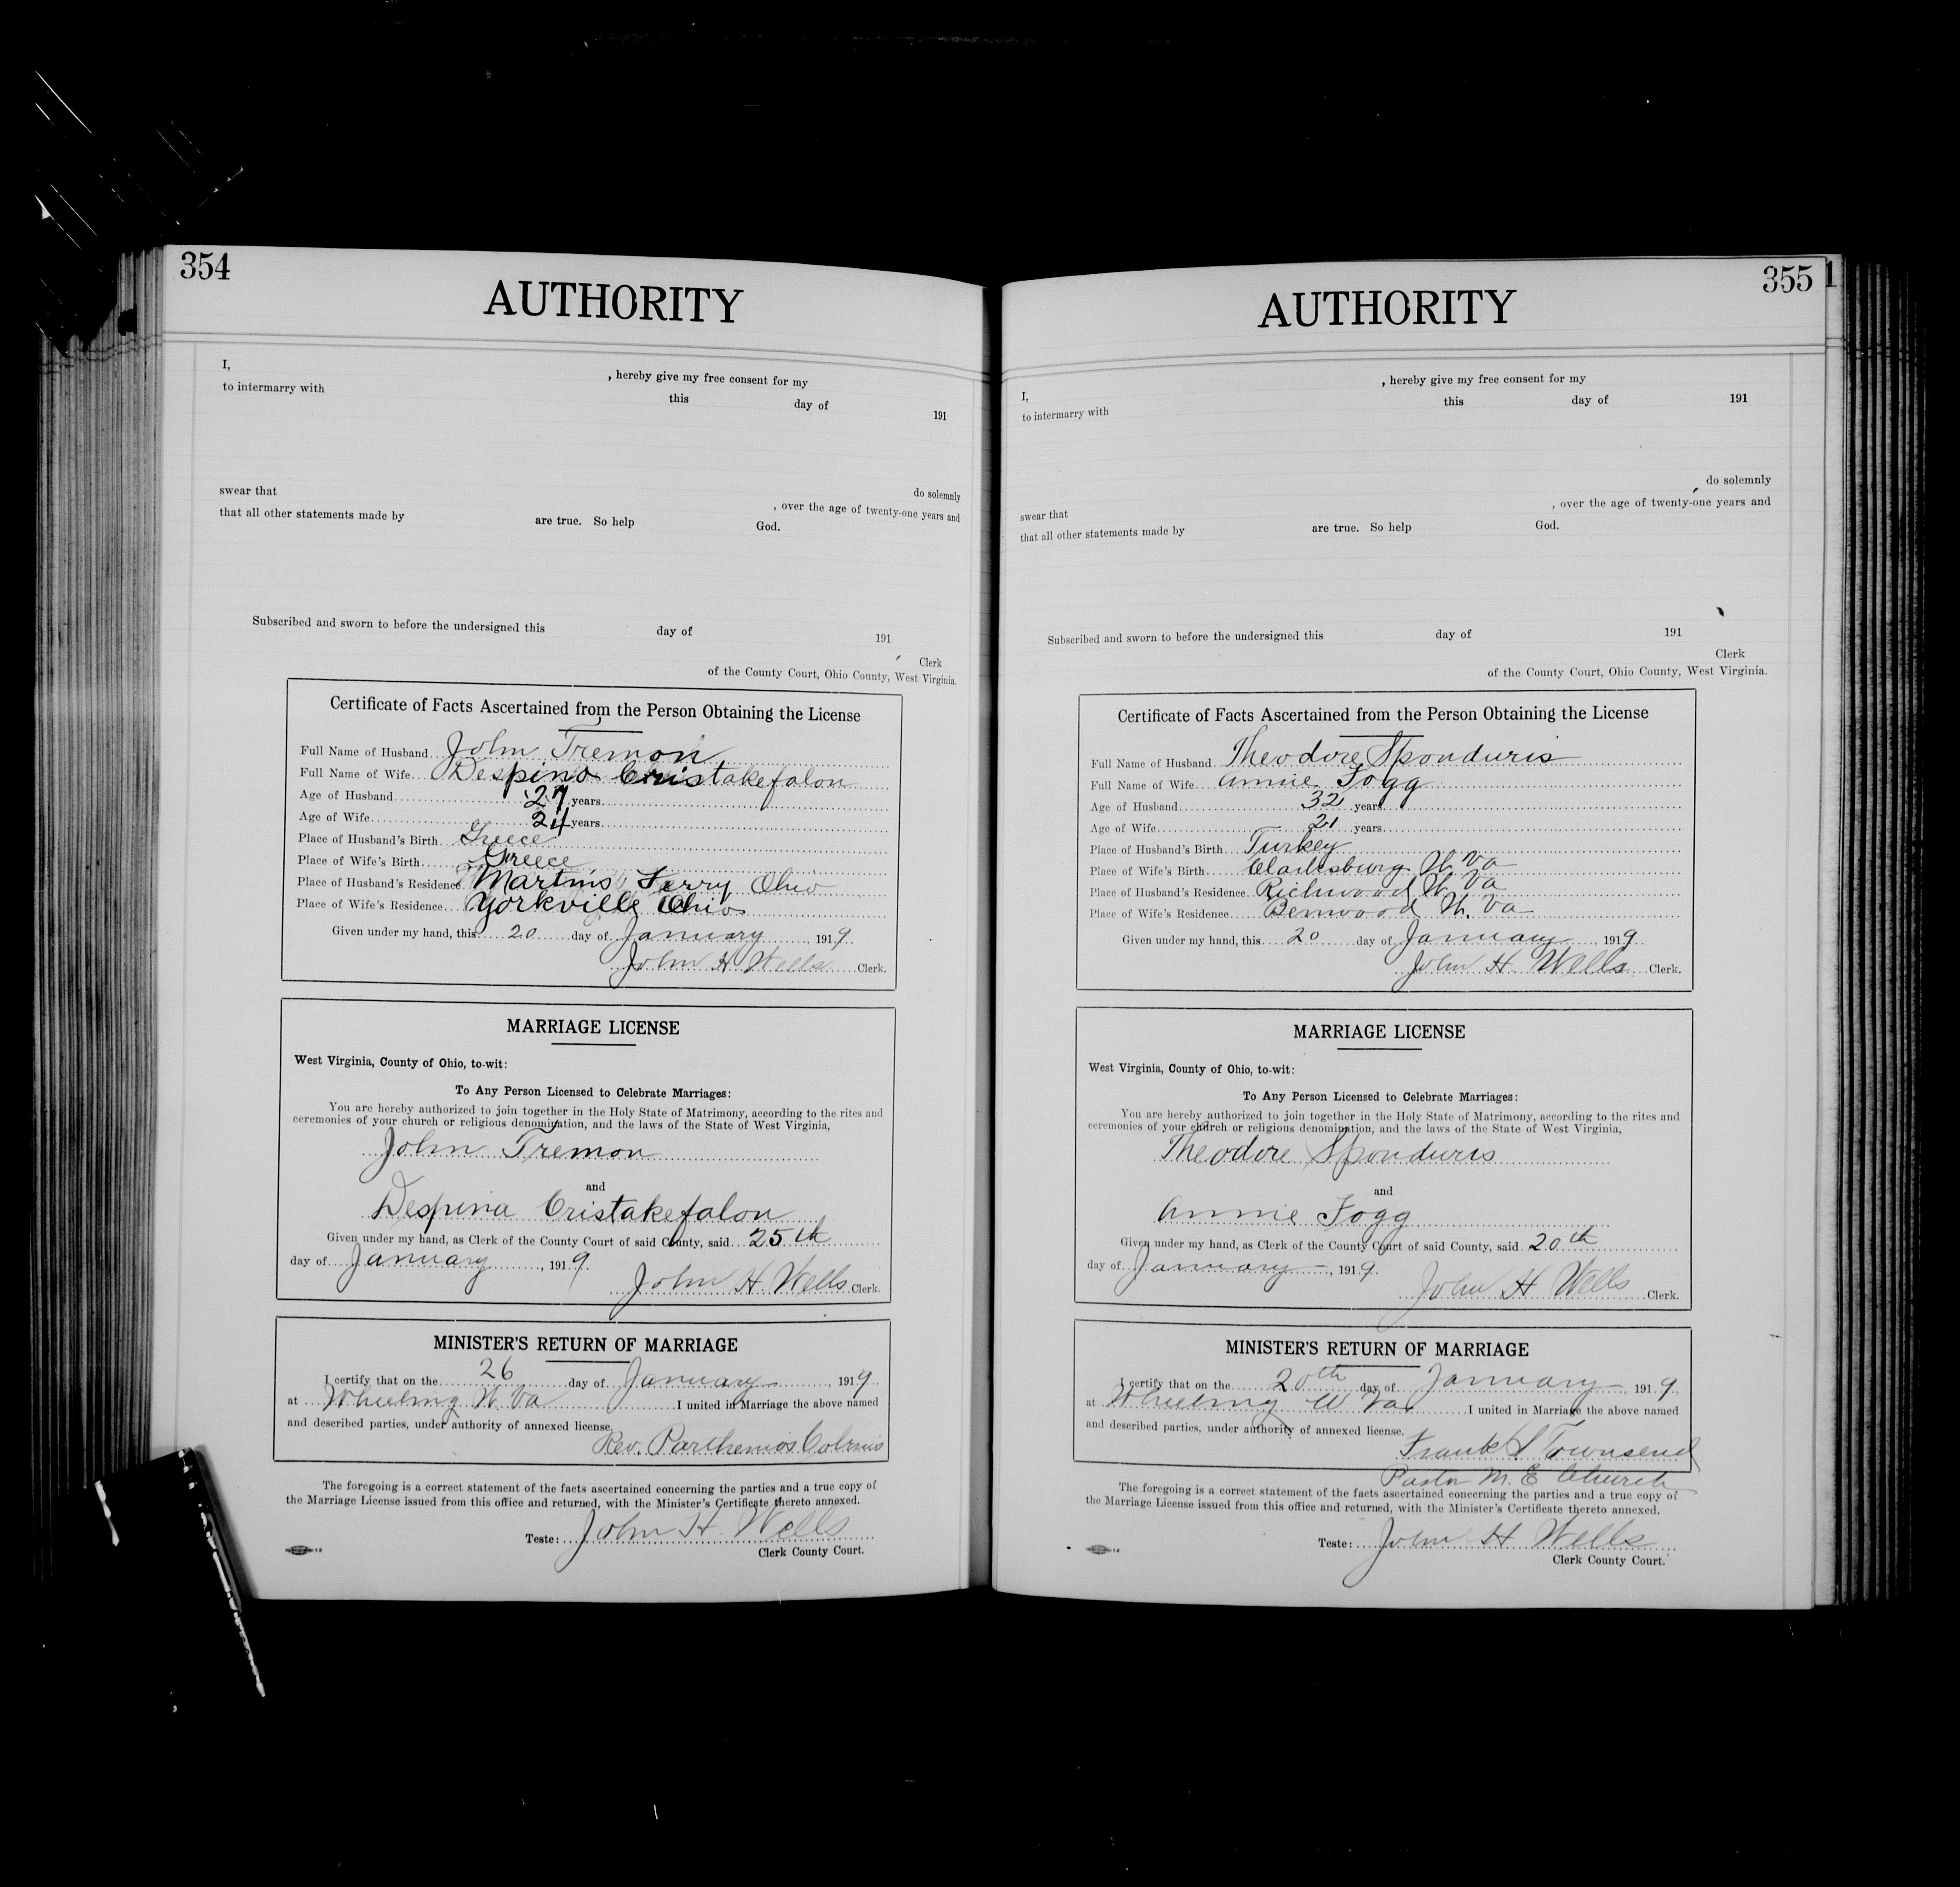 354
AUTHORITY
I,
, hereby give my free consent for my
to intermarry with
this day of 191
do solemnly
swear that
, over the age of twenty-one years and
that all other statements made by are true. So help God.
Subscribed and sworn to before the undersigned this day of 191
Clerk
of the County Court, Ohio County, West Virginia.
Certificate of Facts Ascertained from the Person Obtaining the License
Full Name of Husband John Tremon
Full Name of Wife Despina Cristakefalon
Age of Husband 27 years
Age of Wife 24 years
Place of Husband's Birth Greece
Place of Wife's Birth Greece
Place of Husband's Residence Martins Ferry Ohio
Place of Wife's Residence Yorkville Ohio
Given under my hand, this 20 day of January, 1919.
John H Wells Clerk.
MARRIAGE LICENSE
West Virginia, County of Ohio, to-wit:
To Any Person Licensed to Celebrate Marriages:
You are hereby authorized to join together in the Holy State of Matrimony, according to the rites and
ceremonies of your church or religious denomination, and the laws of the State of West Virginia,
John Tremon
and
Despina Cristakefalon
Given under my hand, as Clerk of the County Court of said County, said 25th
day of January, 1919.
John H Wells Clerk.
MINISTER'S RETURN OF MARRIAGE
I certify that on the 26 day of January, 1919.
at Wheeling W. Va I united in Marriage the above named
and described parties, under authority of annexed license.
Rev. Parthenios
The foregoing is a correct statement of the facts ascertained concerning the parties and a true copy of
the Marriage License issued from this office and returned, with the Minister's Certificate thereto annexed.
Teste: John H. Wells
Clerk County Court.
355
1
AUTHORITY
, hereby give my free consent for my
I,
this day of 191
to intermarry with
do solemnly
swear that
, over the age of twenty-one years and
that all other statements made by are true. So help God.
Subscribed and sworn to before the undersigned this day of 191
Clerk
of the County Court, Ohio County, West Virginia.
Certificate of Facts Ascertained from the Person Obtaining the License
Full Name of Husband Theodore Sponduris
Full Name of Wife Annie Fogg
Age of Husband 32 years
Age of Wife 21 years
Place of Husband's Birth Turkey
Place of Wife's Birth Clarksburg W. Va
Place of Husband's Residence Richwood W. Va
Place of Wife's Residence Benwood W. Va
Given under my hand, this 20 day of January, 1919.
John H. Wells Clerk.
MARRIAGE LICENSE
West Virginia, County of Ohio, to-wit:
To Any Person Licensed to Celebrate Marriages:
You are hereby authorized to join together in the Holy State of Matrimony, according to the rites and
ceremonies of your church or religious denomination, and the laws of the State of West Virginia,
Theodore Sponduris
and
Annie Fogg
Given under my hand, as Clerk of the County Court of said County, said 20th
day of January, 1919.
John H Wells Clerk.
MINISTER'S RETURN OF MARRIAGE
I certify that on the 20th day of January, 1919.
at Wheeling W Va I united in Marriage the above named
and described parties, under authority of annexed license.
Frank S Townsend
Pastor M. E Church
The foregoing is a correct statement of the facts ascertained concerning the parties and a true copy of
the Marriage License issued from this office and returned, with the Minister's Certificate thereto annexed.
Teste: John H Wells
Clerk County Court.